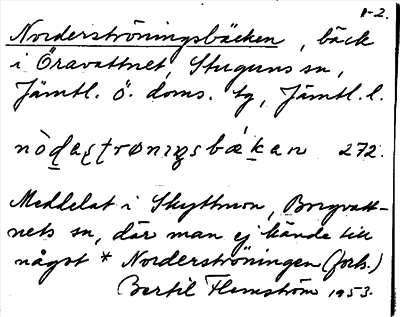 A-2.
Norderströningsbäcken, bäck
i Öravattnet, Stuguns sn,
Jämtl. ö. doms. tg, Jämtl. l.
272.
Meddelat i Skyttmon, Borgvatt-
nets sn, där man ej kände till
något * Norderströningen (forts.)
Bertil Flemström 1953.